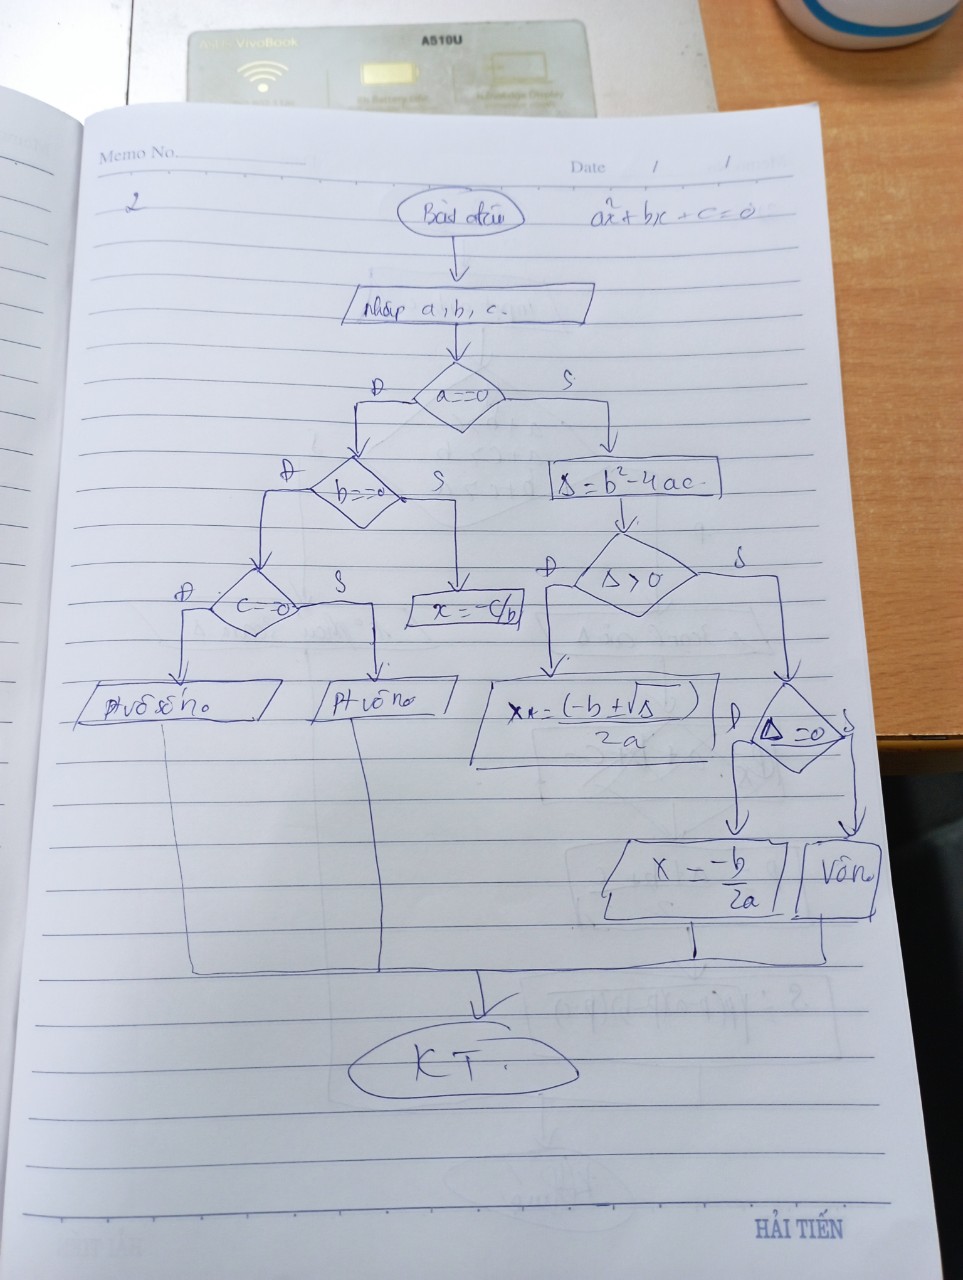 ASUS VivoBook
A510U
Memo No.
Date / /
2
Bắt đầu
ax² + bx + c = 0
Nhập a, b, c.
a==0
Đ
S
b==0
Đ
S
Δ = b² - 4ac.
c==0
Đ
S
x = -c/b
Δ > 0
Đ
S
Pt vô số no
Pt vô no
= (-b ± √Δ) / 2a
Δ = 0
Đ
S
x = -b / 2a
Vô no
KT.
HẢI TIẾN